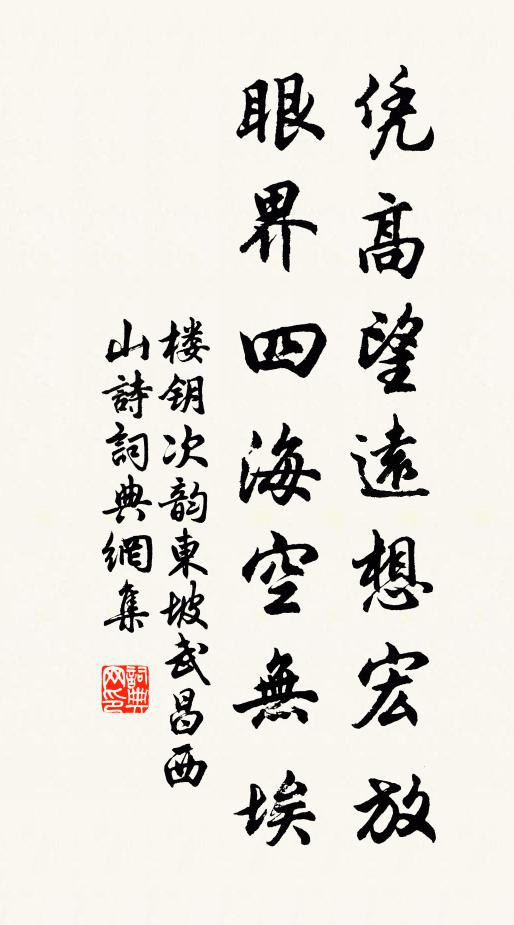 凭高望遠想宏放
眼界四海空無埃
楼钥次韵東坡武昌西
山詩詞典網集
詞典
网印